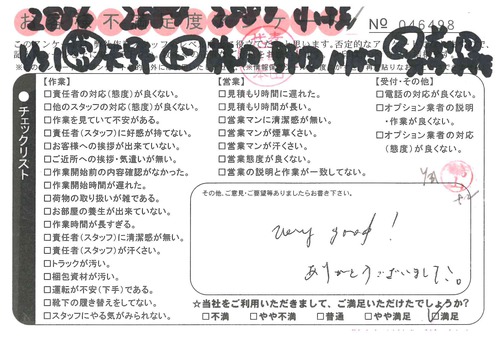 No 046498
チェックリスト
【作業】
□責任者の対応(態度)が良くない。
□他のスタッフの対応(態度)が良くない。
□作業を見ていて不安がある。
□責任者(スタッフ)に好感が持てない。
□お客様への挨拶が出来ていない。
□ご近所への挨拶・気遣いが無い。
□作業開始前の内容確認がなかった。
□作業開始時間が遅れた。
□荷物の取り扱いが雑である。
□お部屋の養生が出来ていない。
□作業時間が長すぎる。
□責任者(スタッフ)に清潔感が無い。
□責任者(スタッフ)が汗くさい。
□トラックが汚い。
□梱包資材が汚い。
□運転が不安(下手)である。
□靴下の履き替えをしてない。
□スタッフにやる気がみられない。
【営業】
□見積もり時間に遅れた。
□見積もり時間が長い。
□営業マンに清潔感が無い。
□営業マンが煙草くさい。
□営業マンが汗くさい。
□営業態度が良くない。
□営業の説明と作業が一致してない。
【受付・その他】
□電話の対応が良くない。
□オプション業者の説明
・作業が良くない。
□オプション業者の対応
(態度)が良くない。
その他、ご意見・ご要望等ありましたらお書き下さい。
very good!
ありがとうございました。
☆当社をご利用いただきまして、ご満足いただけたでしょうか?
□不満 □やや不満 □普通 □やや満足 □満足